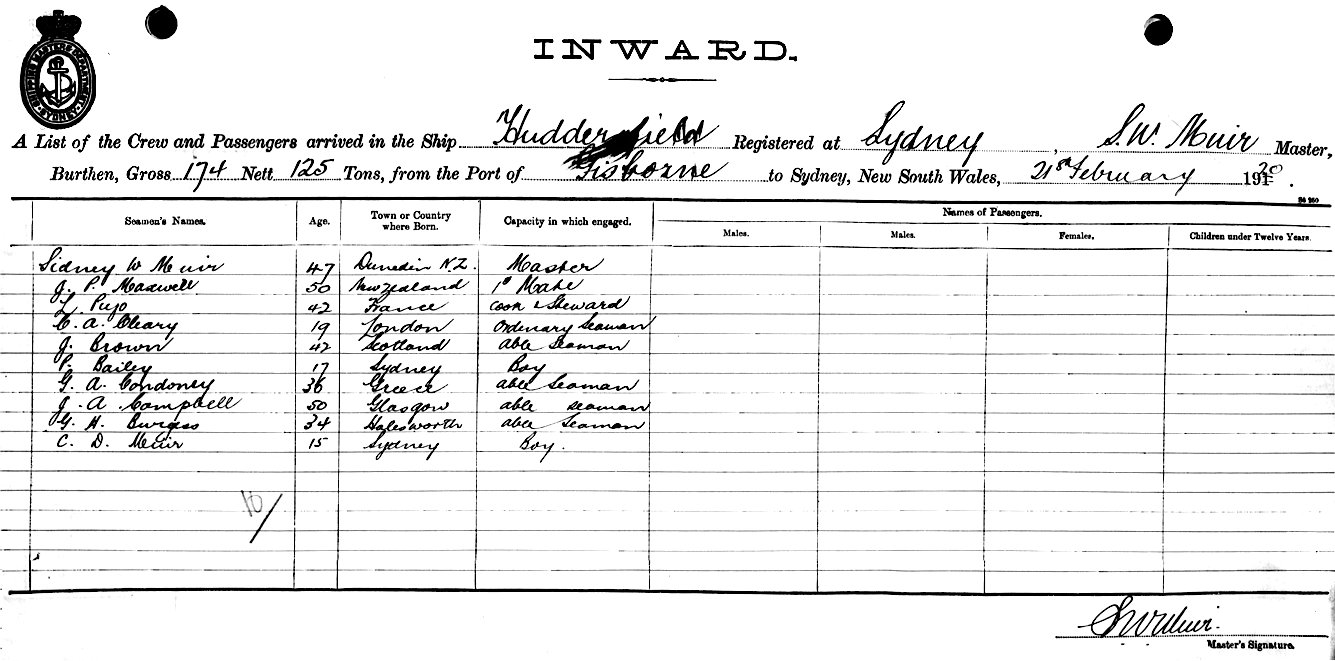 SHIPPING MASTERS DEPARTMENT SYDNEY
INWARD.
A List of the Crew and Passengers arrived in the Ship Huddersfield Registered at Sydney, S.W. Muir Master,
Burthen, Gross 174 Nett 125 Tons, from the Port of Gisborne to Sydney, New South Wales, 21st February 1920.
Seamen's Names. Age. Town or Country where Born. Capacity in which engaged. Names of Passengers.
Males. Males. Females. Children under Twelve Years.
Sidney W Muir 47 Dunedin N.Z. Master
J. P. Maxwell 50 New Zealand 1st Mate
L. Pujo 42 France Cook & Steward
C. A. Cleary 19 London Ordinary Seaman
J. Brown 42 Scotland able Seaman
P. Bailey 17 Sydney Boy
G. A. Condoney 36 Greece able Seaman
J. A. Campbell 50 Glasgow able seaman
G. H. Burgess 34 Halesworth able Seaman
C. D. Muir 15 Sydney Boy.
10/
SW Muir.
Master's Signature.